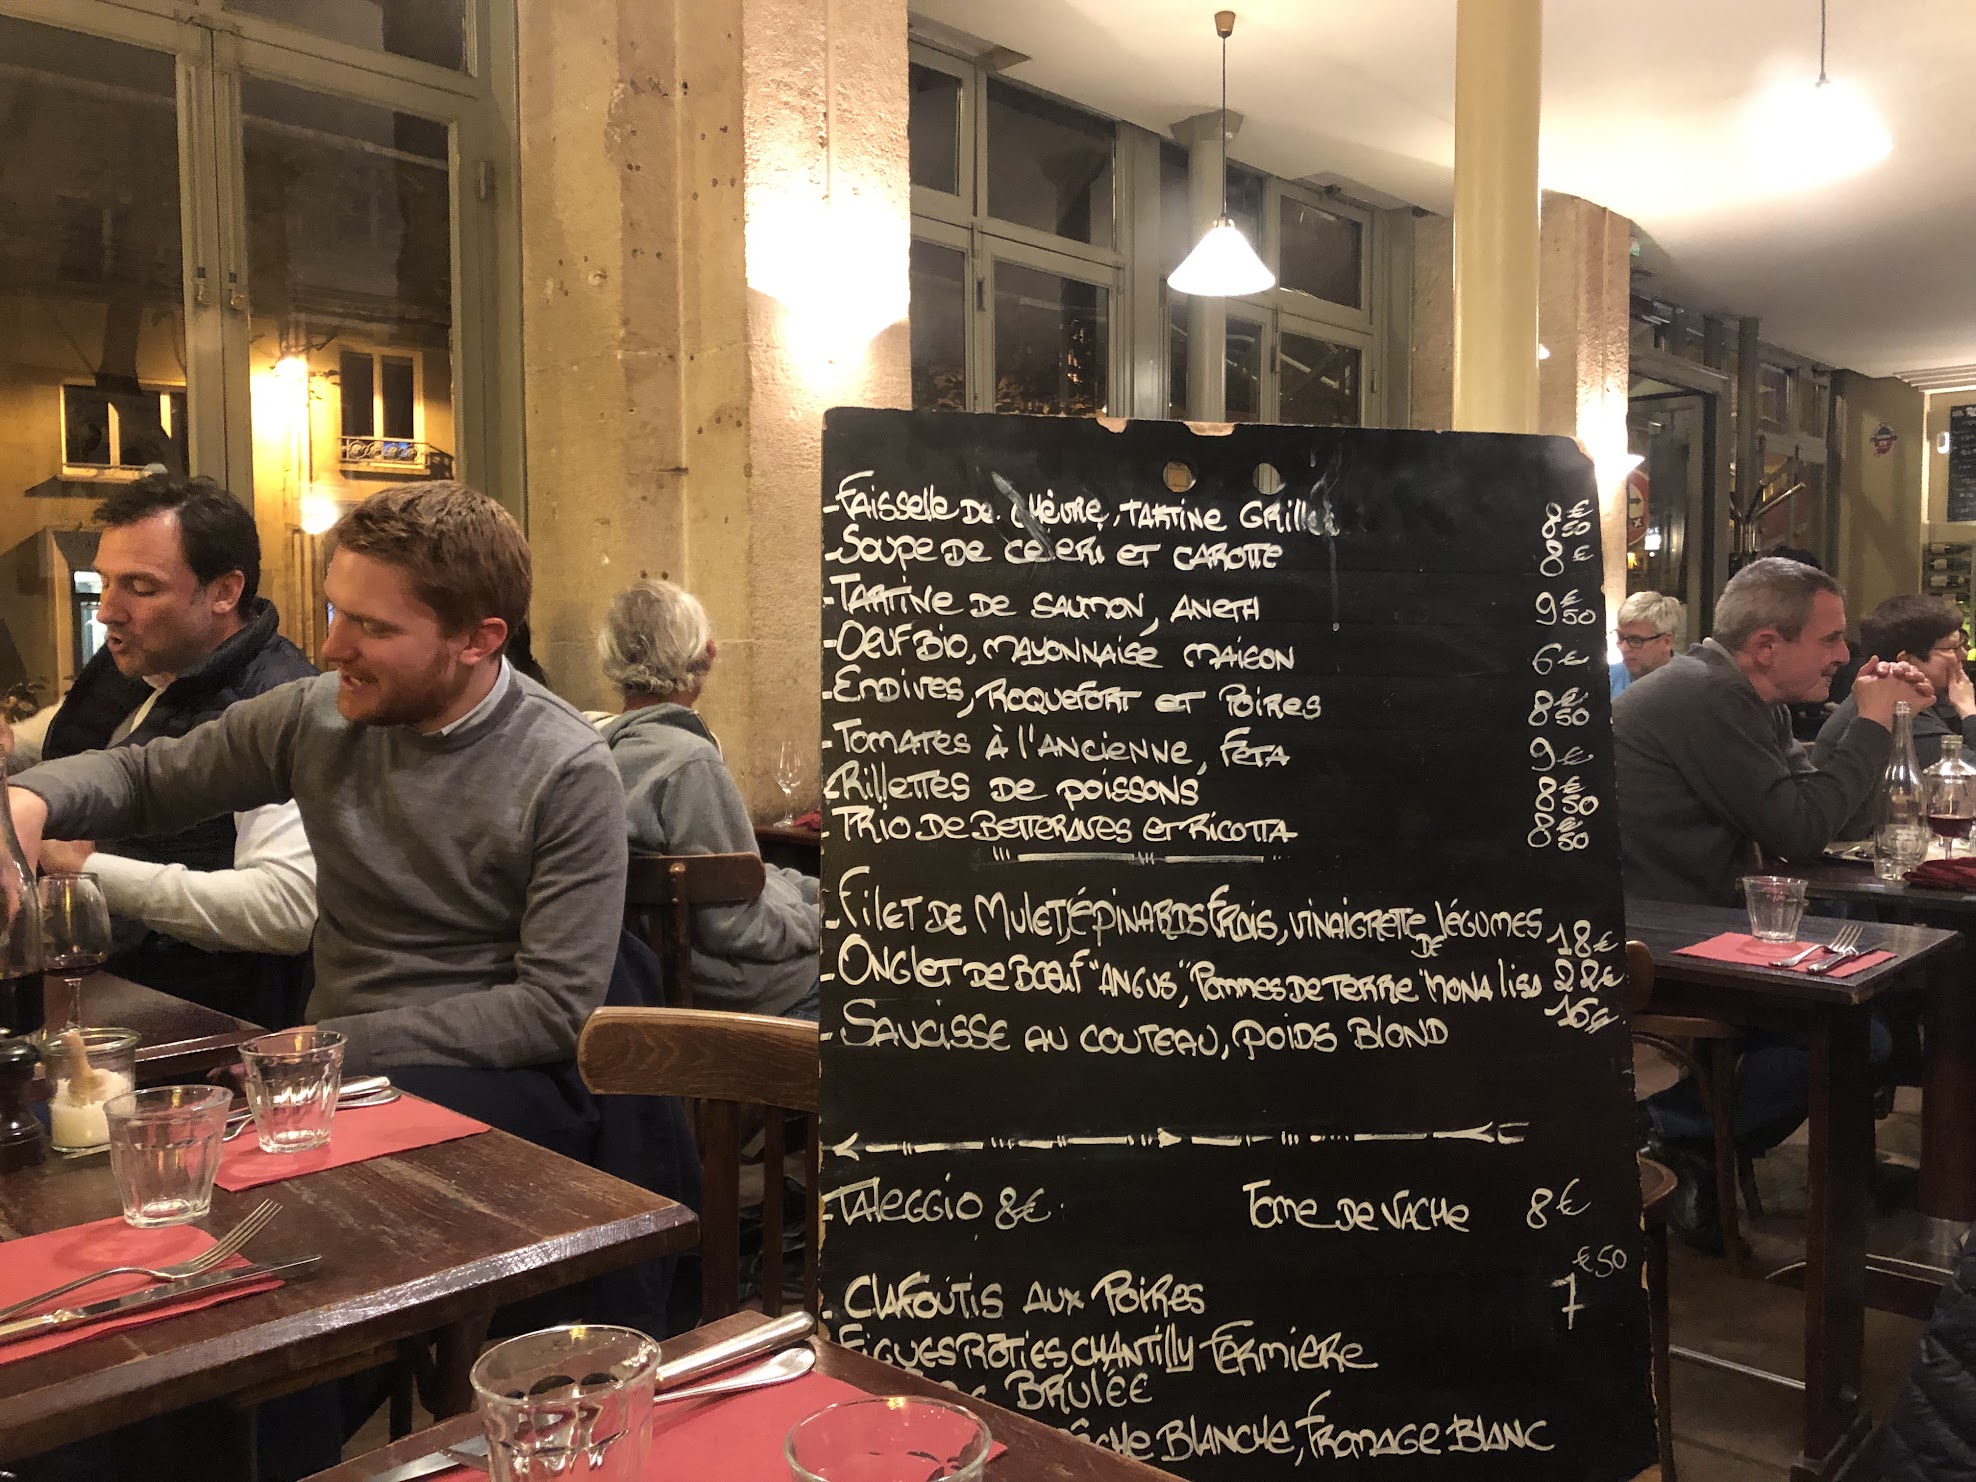 -Faisselle de chèvre, Tartine Grillée 8€50
-Soupe de celeri et carotte 8€
-Tartine de saumon, aneth 9€50
-Oeuf Bio, mayonnaise maison 6€
-Endives, Roquefort et Poires 8€50
-Tomates à l'ancienne, Feta 9€
-Rillettes de poissons 8€50
-Trio de Betteraves et Ricotta 8€50
-Filet de Mulet, épinards frais, vinaigrette de légumes 18€
-Onglet de Boeuf "Angus", Pommes de Terre "Mona lisa 22€
-Saucisse au couteau, poids Blond 16€
-Taleggio 8€ Tome de vache 8€
-Clafoutis aux Poires 7€50
Figues Rôties, Chantilly Fermière
Brulée
Blanche, Fromage Blanc